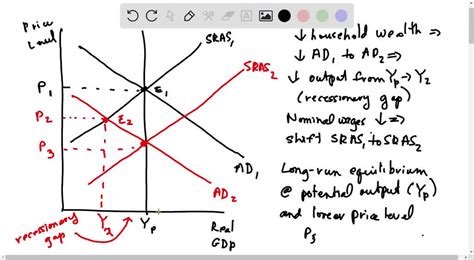 Price
Level
P₁
P₂
P₃
SRAS₁
SRAS₂
E₁
E₂
AD₁
AD₂
Y₂
Yₚ
Real
GDP
recessionary
gap
↓ household wealth ⇒
↓ AD₁ to AD₂ ⇒
↓ output from Yₚ → Y₂
(recessionary gap)
Nominal wages ↓ ⇒
shift SRAS₁ to SRAS₂
Long-run equilibrium
@ potential output (Yₚ)
and lower price level
P₃